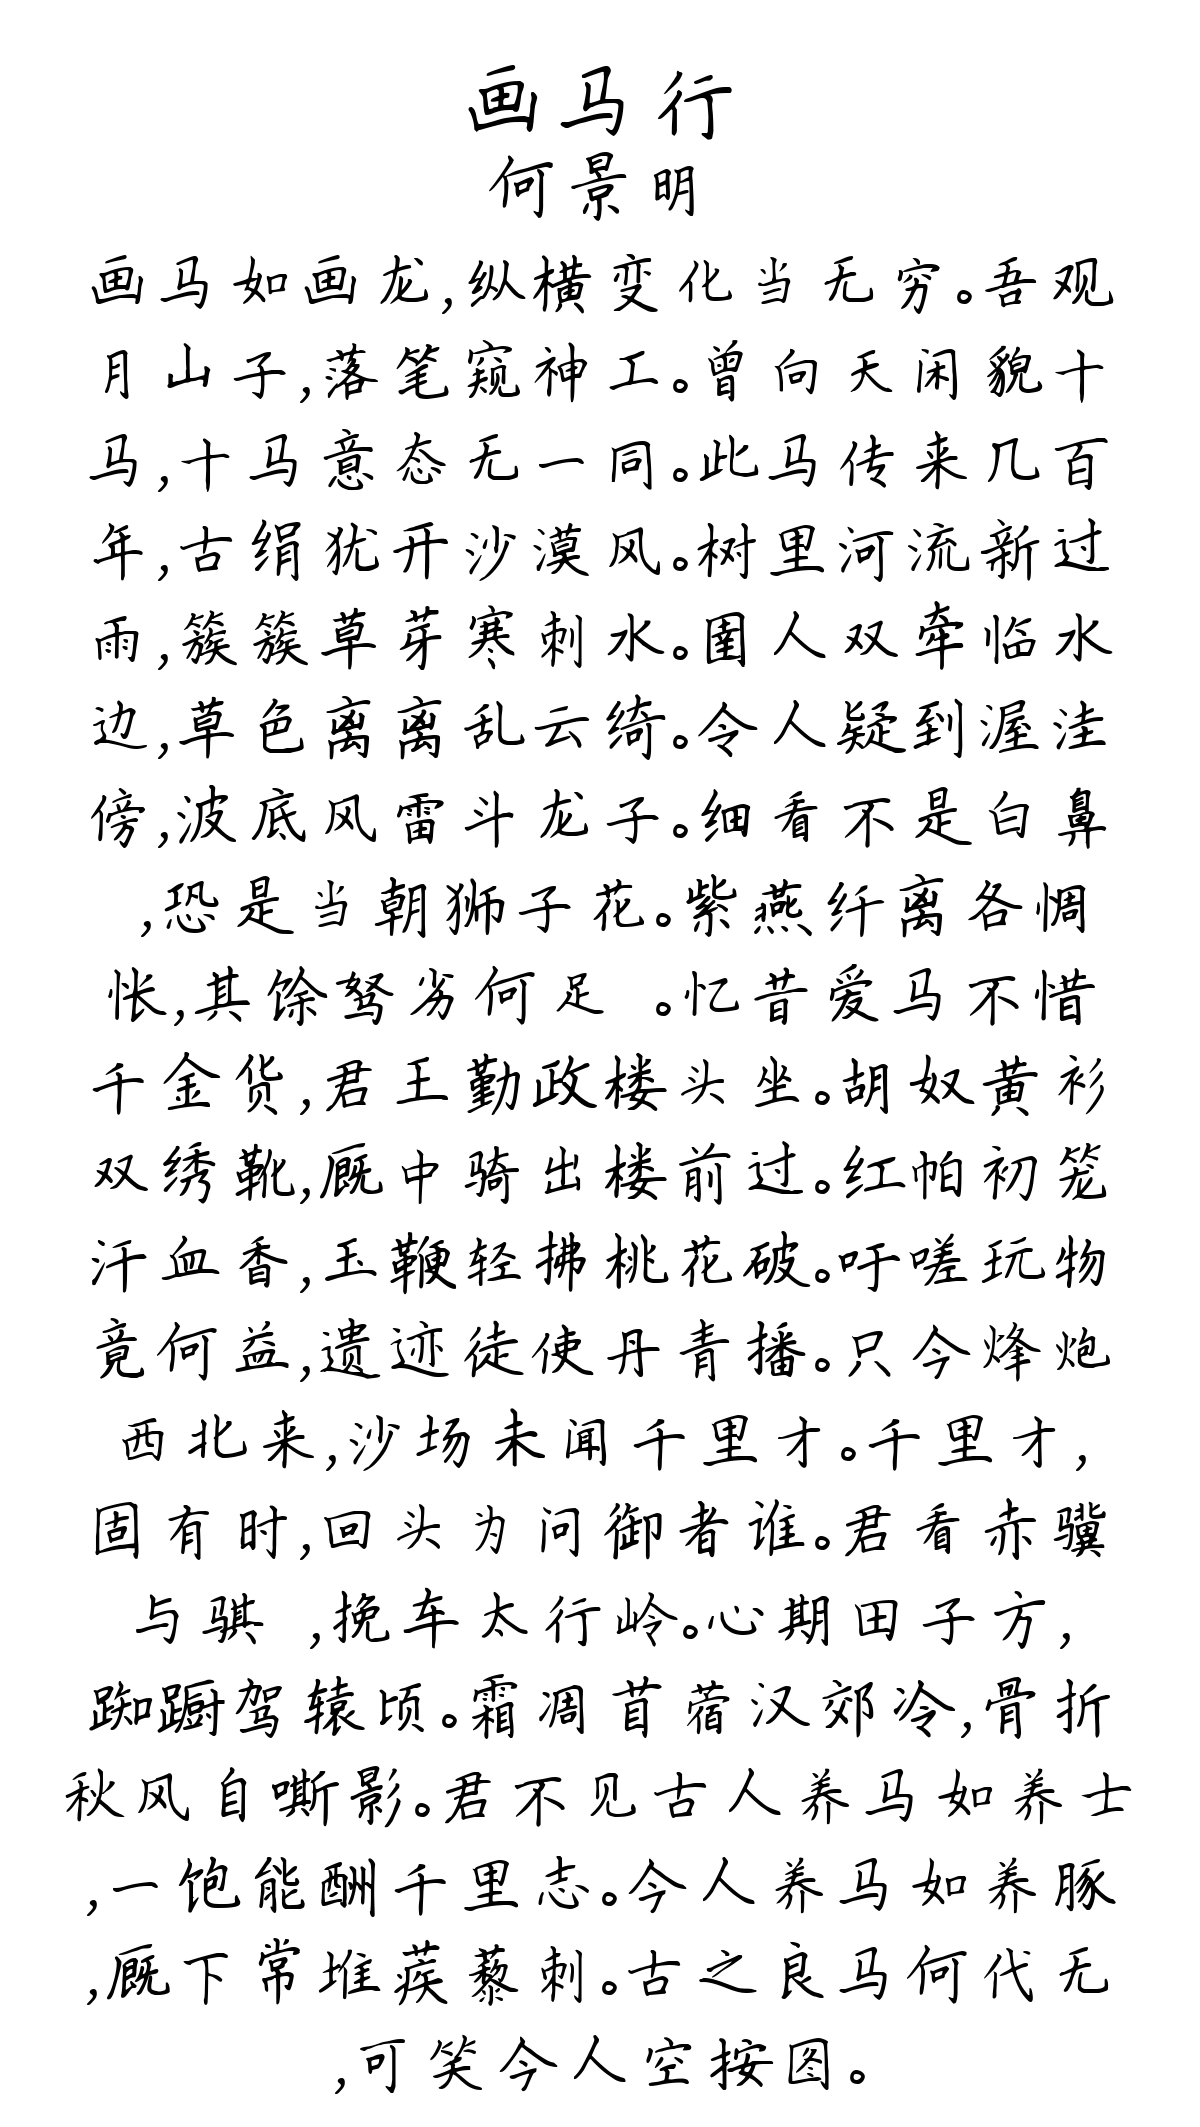 画马行
何景明
画马如画龙,纵横变化当无穷。吾观
月山子,落笔窥神工。曾向天闲貌十
马,十马意态无一同。此马传来几百
年,古绢犹开沙漠风。树里河流新过
雨,簇簇草芽寒刺水。圉人双牵临水
边,草色离离乱云绮。令人疑到渥洼
傍,波底风雷斗龙子。细看不是白鼻
,恐是当朝狮子花。紫燕纤离各惆
怅,其馀驽劣何足 。忆昔爱马不惜
千金货,君王勤政楼头坐。胡奴黄衫
双绣靴,厩中骑出楼前过。红帕初笼
汗血香,玉鞭轻拂桃花破。吁嗟玩物
竟何益,遗迹徒使丹青播。只今烽炮
西北来,沙场未闻千里才。千里才,
固有时,回头为问御者谁。君看赤骥
与骐 ,挽车太行岭。心期田子方,
踟蹰驾辕顷。霜凋苜蓿汉郊冷,骨折
秋风自嘶影。君不见古人养马如养士
,一饱能酬千里志。今人养马如养豚
,厩下常堆蒺藜刺。古之良马何代无
,可笑今人空按图。